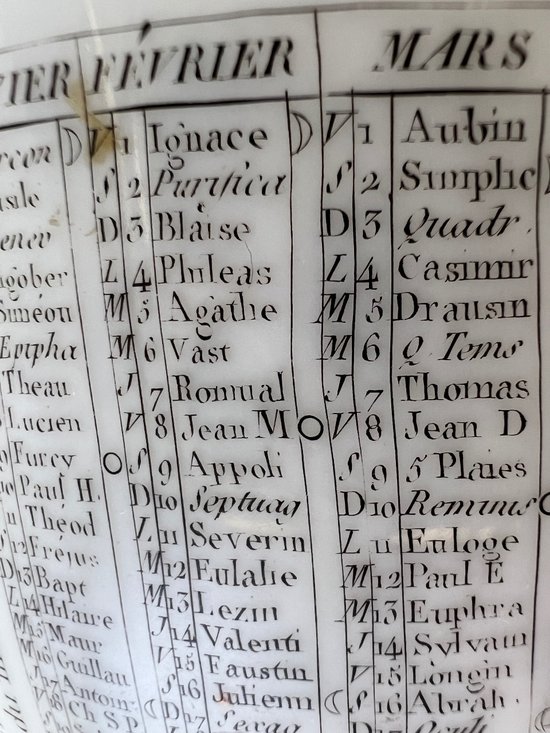 VIER FÉVRIER MARS
V 1 Ignace V 1 Aubin
S 2 Purifica S 2 Simplic
D 3 Blaise D 3 Quadr.
L 4 Phileas L 4 Casimir
Siméon M 5 Agathe M 5 Drausin
Epipha M 6 Vast M 6 Q Tems
Theau J 7 Romual J 7 Thomas
Lucien V 8 Jean M V 8 Jean D
Furcy S 9 Appoli S 9 5 Plaies
10 Paul H. D 10 Septuag D 10 Reminis
11 Théod L 11 Severin L 11 Euloge
S 12 Fréjus M 12 Eulalie M 12 Paul E
D 13 Bapt M 13 Lezin M 13 Euphra
L 14 Hilaire J 14 Valenti J 14 Sylvain
M 15 Maur V 15 Faustin V 15 Longin
M 16 Guillau S 16 Julienn S 16 Abrah.
J 17 Antoin D 17 Sexag D 17 Oculi
V 18 Ch S P